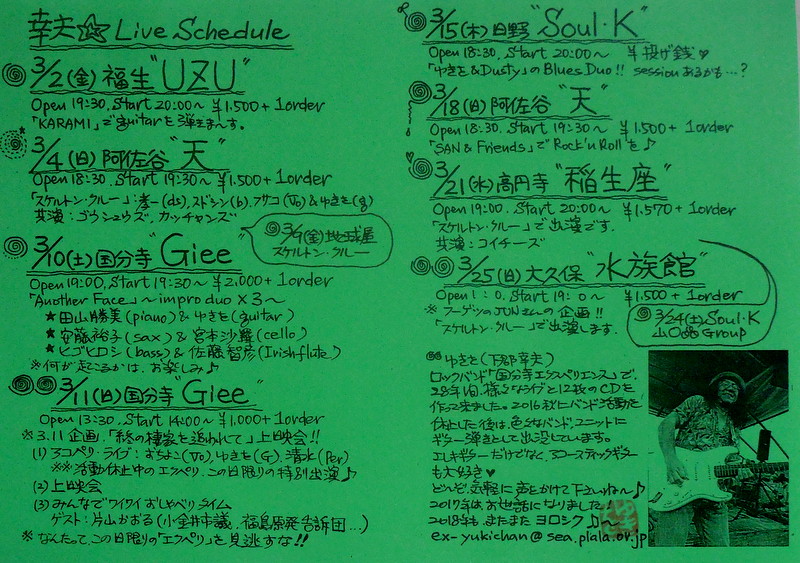 幸夫☆ Live Schedule
3/2(金) 福生 "UZU"
Open 19:30, Start 20:00〜 ¥1,500 + 1order
「KARAMI」で guitar を弾きま〜す。
3/4(日) 阿佐谷 "天"
Open 18:30, Start 19:30〜 ¥1,500 + 1order
「スケルトン・クルー」: 孝一(ds), ストシン(b), アサコ(Vo) & ゆきを(g)
共演: ゴウシュウズ, カッチャンズ
3/9(金) 地球屋
スケルトン・クルー
3/10(土) 国分寺 "Giee"
Open 19:00, Start 19:30〜 ¥2,000 + 1order
「Another Face」〜 impro duo × 3 〜
★田山勝美(piano) & ゆきを(guitar)
★安藤裕子(sax) & 宮本沙羅(cello)
★ヒゴヒロシ(bass) & 佐藤智彦(Irish flute)
※何が起こるかは、お楽しみ♪
3/11(日) 国分寺 "Giee"
Open 13:30, Start 14:00〜 ¥1,000 + 1order
※3.11企画 「終の棲家を追われて」上映会!!
(1) アコペリ・ライブ: おちょこ(Vo), ゆきを(G), 清水(Per)
※※活動休止中のエクペリ、この日限りの特別出演♪
(2) 上映会
(3) みんなでワイワイおしゃべりタイム
ゲスト: 片山かおる(小金井市議、福島原発告訴団...)
※なんたって、この日限りの「エクペリ」を見逃すな!!
3/15(木) 日野 "Soul・K"
Open 18:30, Start 20:00〜 ¥投げ銭♥
「ゆきを & Dusty」の Blues Duo!! session あるかも…?
3/18(日) 阿佐谷 "天"
Open 18:30, Start 19:30〜 ¥1,500 + 1order
「SAN & Friends」で Rock'n Roll を♪
3/21(水) 高円寺 "稲生座"
Open 19:00, Start 20:00〜 ¥1,570 + 1order
「スケルトン・クルー」で出演です。
共演: コイチーズ
3/25(日) 大久保 "水族館"
Open 1:0, Start 19:0〜 ¥1,500 + 1order
※フーゲツのJUNさんの企画!!
「スケルトン・クルー」で出演します。
3/24(土) Soul・K
山口 Group
ゆきを(下部幸夫)
ロックバンド「国分寺エクスペリエンス」で、
28年間、様々なライブと12枚のCDを
作って来ました。2016秋にバンド活動を
休止した後は、色々なバンド、ユニットに
ギター弾きとして出没しています。
エレキギターだけでなく、アコースティックギター
も大好き♥
どうぞ、気軽に声をかけて下さいねん♪
2017年はお世話になりました!
2018年も、またまたヨロシク♪〜
ex-yukichan@sea.plala.or.jp